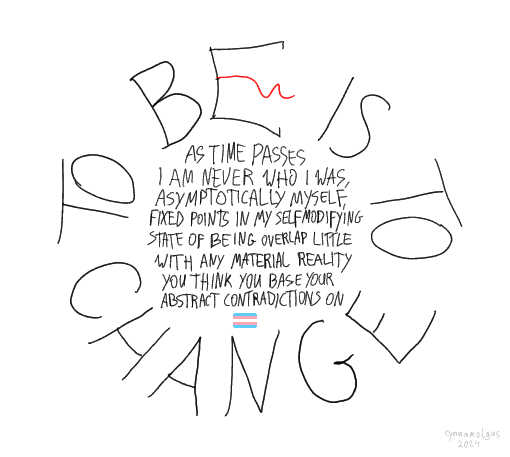 TO BE IS TO CHANGE
AS TIME PASSES
I AM NEVER WHO I WAS,
ASYMPTOTICALLY MYSELF,
FIXED POINTS IN MY SELFMODIFYING
STATE OF BEING OVERLAP LITTLE
WITH ANY MATERIAL REALITY
YOU THINK YOU BASE YOUR
ABSTRACT CONTRADICTIONS ON
cynnamolgus
2024